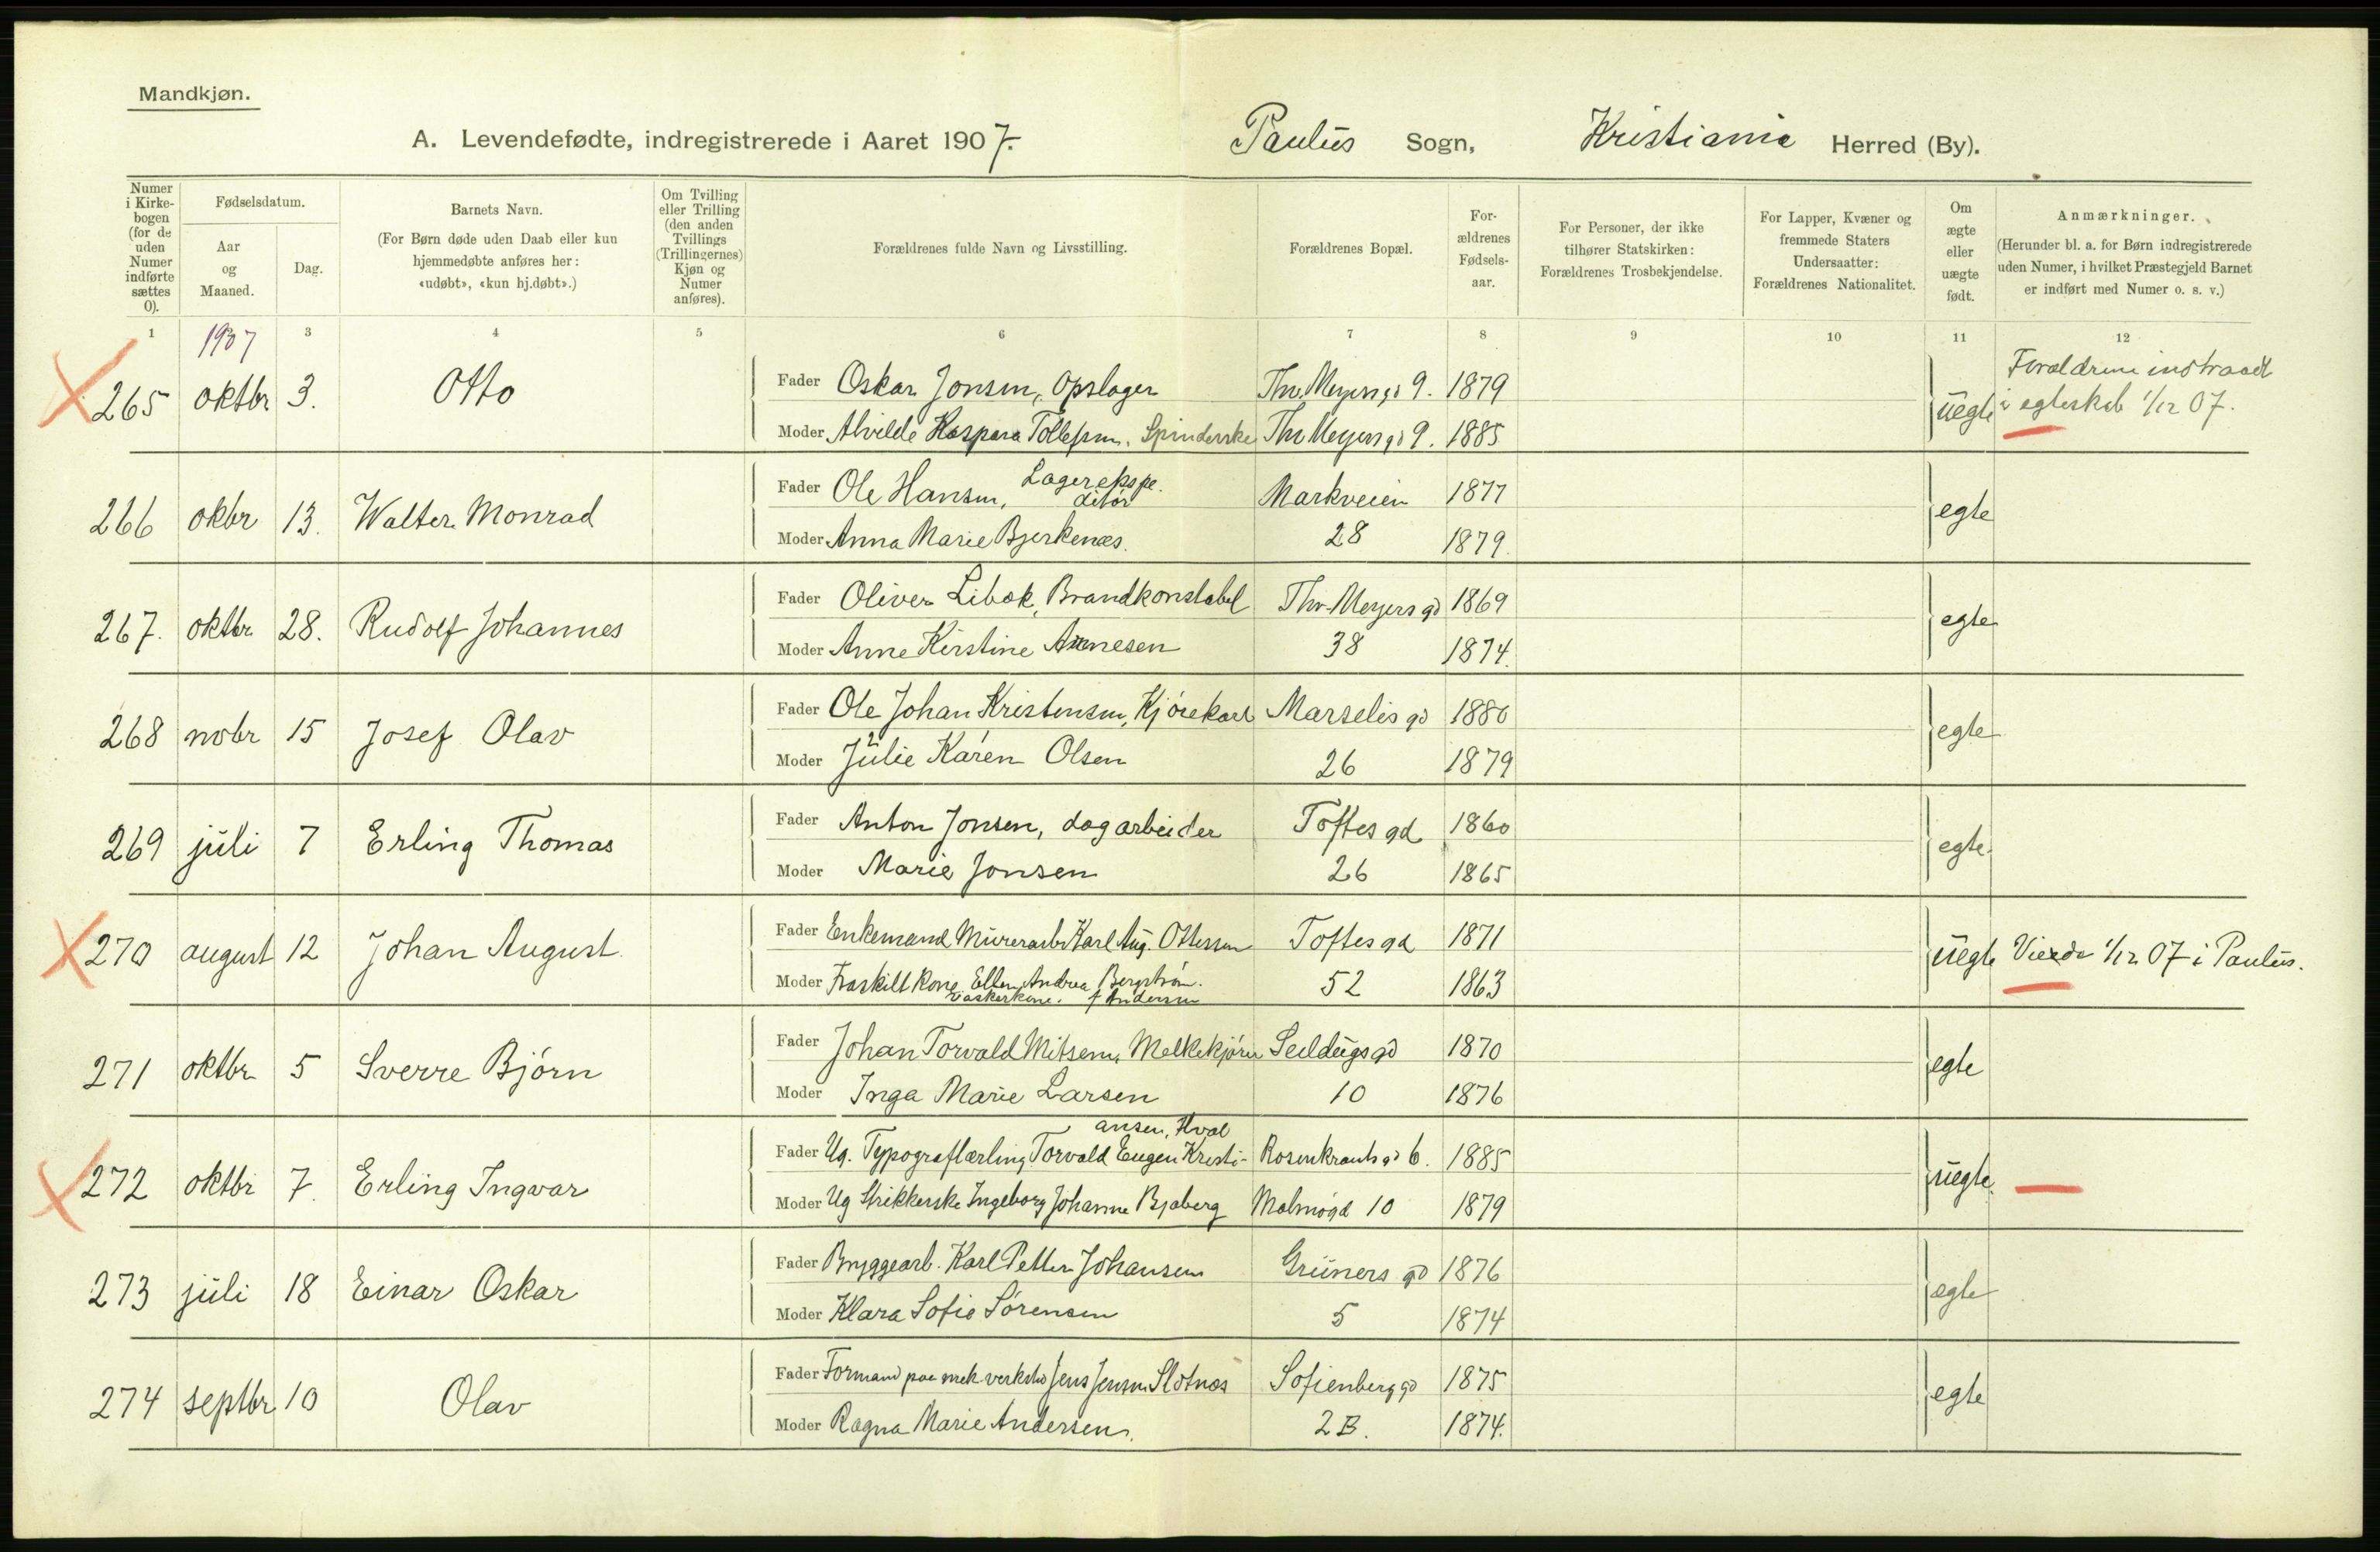 Mandkjøn.
A. Levendefødte, indregistrerede i Aaret 1907. Paulus Sogn, Kristiania Herred (By).
Numer i Kirkebogen (for de uden Numer indførte sættes 0).
Fødselsdatum.
Aar og Maaned.
Dag.
Barnets Navn.
(For Børn døde uden Daab eller kun hjemmedøbte anføres her: «udøbt», «kun hj.døbt».)
Om Tvilling eller Trilling (den anden Tvillings (Trillingernes) Kjøn og Numer anføres).
Forældrenes fulde Navn og Livsstilling.
Forældrenes Bopæl.
Forældrenes Fødselsaar.
For Personer, der ikke tilhører Statskirken: Forældrenes Trosbekjendelse.
For Lapper, Kvæner og fremmede Staters Undersaatter: Forældrenes Nationalitet.
Om ægte eller uægte født.
Anmærkninger.
(Herunder bl. a. for Børn indregistrerede uden Numer, i hvilket Præstegjeld Barnet er indført med Numer o. s. v.)
1 1907 3 4 5 6 7 8 9 10 11 12
265 oktbr 3. Otto
Fader Oskar Jonsen, Opslager Thv. Meyers gd 9. 1879
Moder Alvilde Kaspara Tollefsen. Spinderske Thv Meyers gd 9. 1885
uegte Forældrene indtraadt
i egteskab 1/12 07.
266 okbr 13. Walter Monrad
Fader Ole Hansen, Lagerekspeditør Markveien 1877
Moder Anna Marie Bjerkenæs. 28 1879.
egte
267. oktbr 28. Rudolf Johannes
Fader Oliver Libæk, Brandkonstabel Thv. Meyers gd 1869
Moder Anne Kirstine Arnesen 38 1874.
egte
268 novbr 15 Josef Olav
Fader Ole Johan Kristensen, Kjørekarl Marselis gd 1880
Moder Julie Karen Olsen 26 1879
egte
269 juli 7 Erling Thomas
Fader Anton Jonsen, dagarbeider Toftes gd 1860
Moder Marie Jonsen 26 1865
egte.
270 august 12 Johan August.
Fader Enkemand Murerarb. Karl Aug. Ottersen Toftes gd 1871
Moder Fraskilt Kone Ellen Andrea Bergstrøm. 52 1863
vaskerkone. f Andersen
uegte Viede 1/12 07 i Paulus.
271 oktbr 5 Sverre Bjørn
Fader Johan Torvald Mitsem, Melkekjører Seildugs gd 1870
Moder Inga Marie Larsen 10 1876
egte
272 oktbr 7. Erling Ingvar
ansen, Hval
Fader Ug. Typograflærling Torvald Eugen Kristi- Rosenkrants gd 6. 1885
Moder Ug Strikkerske Ingeborg Johanne Bjaberg Malmøgd 10 1879
uegte.
273 juli 18 Einar Oskar
Fader Bryggearb. Karl Petter Johansen Grüners gd 1876
Moder Klara Sofie Sørensen 5 1874
ægte
274 septbr 10 Olav
Fader Formand paa mek. verksted Jens Jensen Slotnæs Sofienberg gd 1875
Moder Ragna Marie Andersen. 2B. 1874.
egte